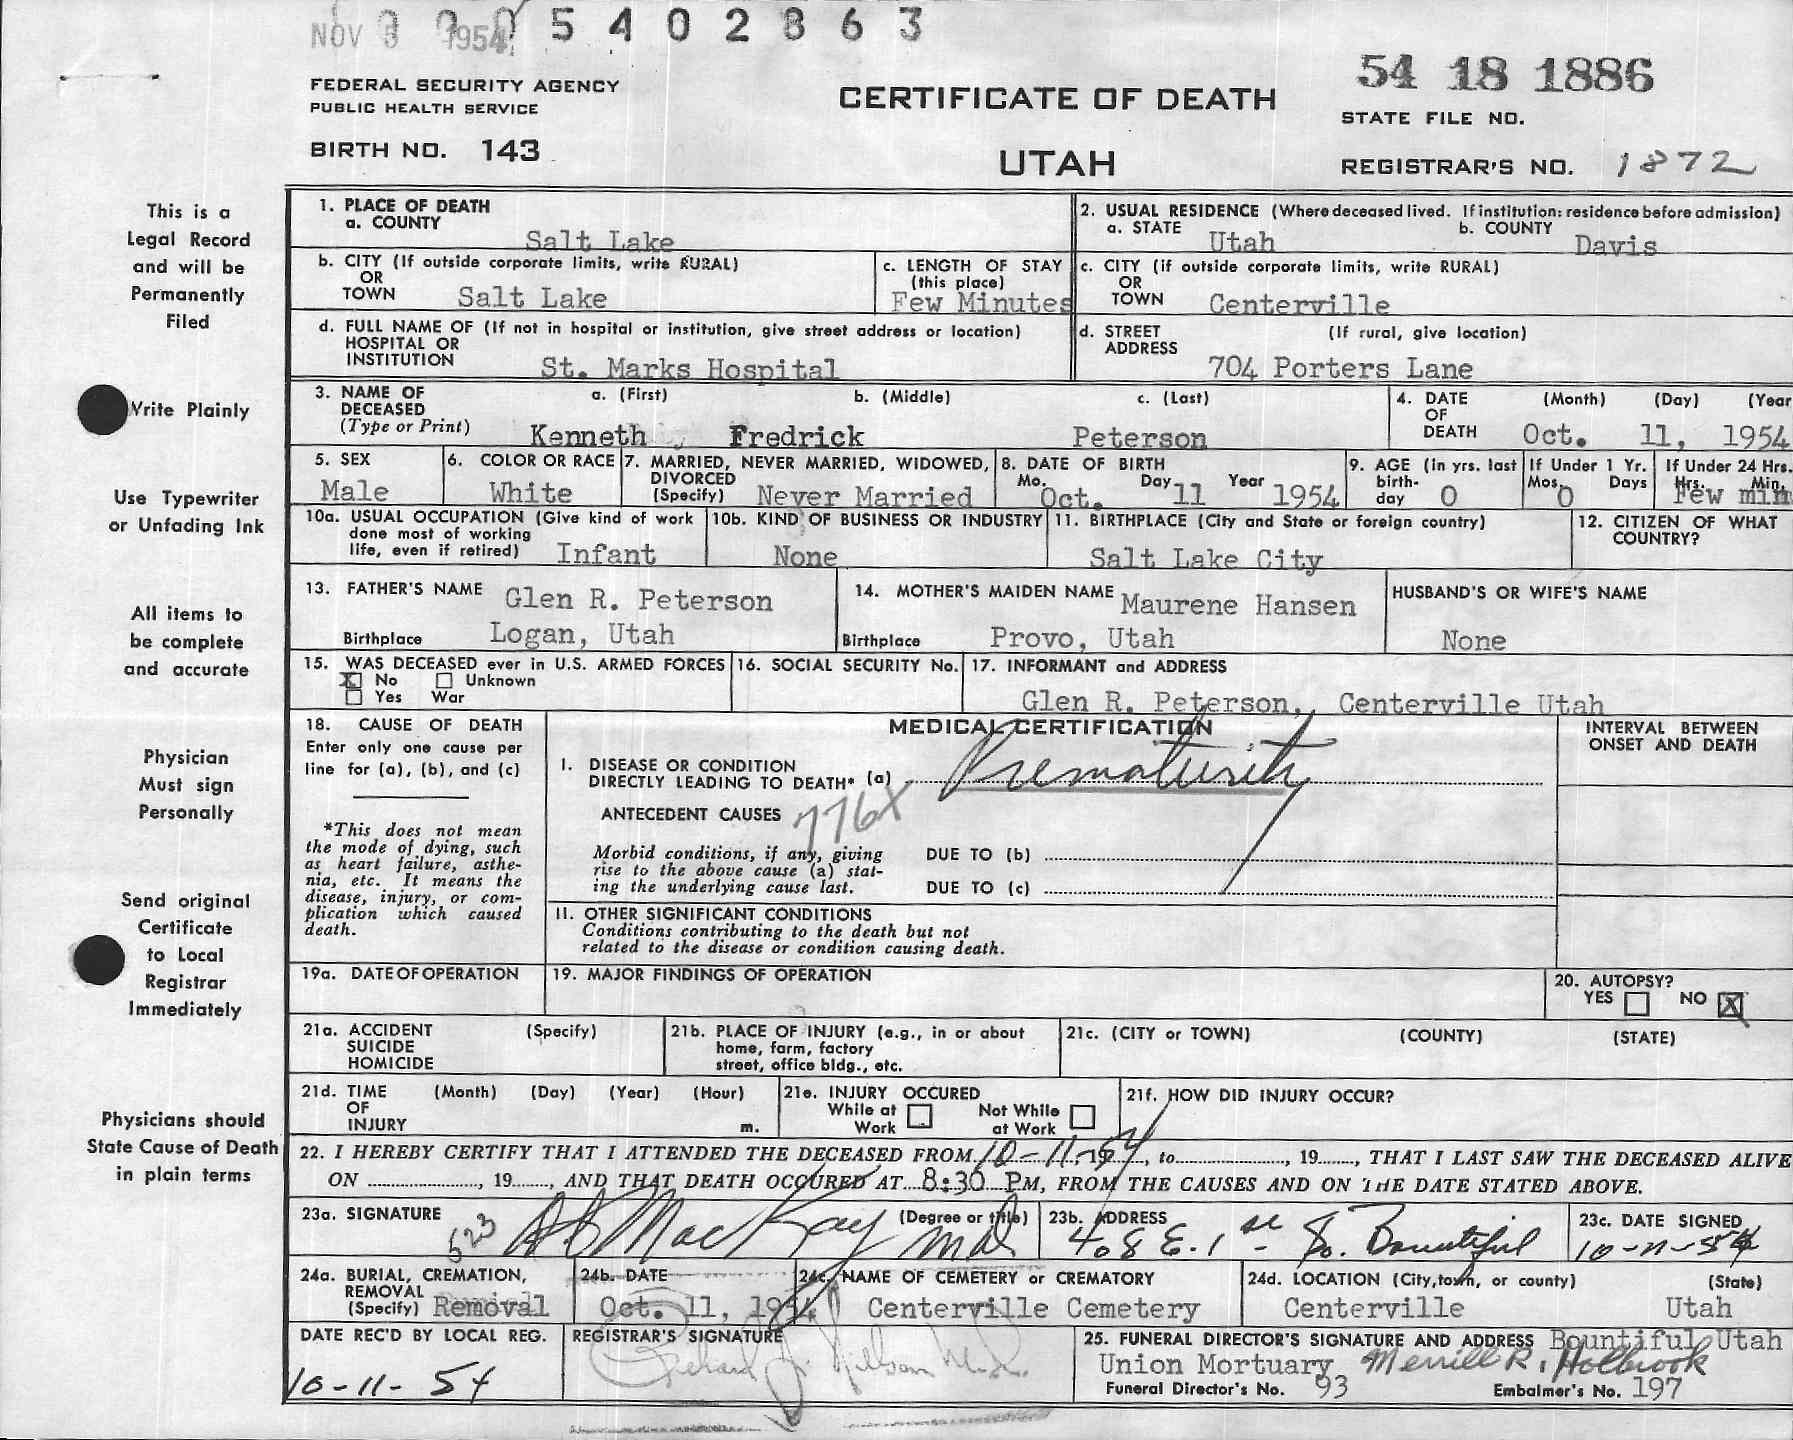 NOV 8 1954 5402863
54 18 1886
FEDERAL SECURITY AGENCY
PUBLIC HEALTH SERVICE
CERTIFICATE OF DEATH
STATE FILE NO.
BIRTH NO. 143
UTAH
REGISTRAR'S NO. 1872
This is a
Legal Record
and will be
Permanently
Filed
Write Plainly
Use Typewriter
or Unfading Ink
All items to
be complete
and accurate
Physician
Must sign
Personally
Send original
Certificate
to Local
Registrar
Immediately
Physicians should
State Cause of Death
in plain terms
1. PLACE OF DEATH
a. COUNTY
Salt Lake
2. USUAL RESIDENCE (Where deceased lived. If institution: residence before admission)
a. STATE Utah b. COUNTY Davis
b. CITY (If outside corporate limits, write RURAL)
OR
TOWN Salt Lake
c. LENGTH OF STAY
(this place)
Few Minutes
c. CITY (if outside corporate limits, write RURAL)
OR
TOWN Centerville
d. FULL NAME OF (If not in hospital or institution, give street address or location)
HOSPITAL OR
INSTITUTION St. Marks Hospital
d. STREET (If rural, give location)
ADDRESS 704 Porters Lane
3. NAME OF DECEASED
(Type or Print)
a. (First) b. (Middle) c. (Last)
Kenneth Fredrick Peterson
4. DATE OF DEATH (Month) (Day) (Year
Oct. 11, 1954
5. SEX
Male
6. COLOR OR RACE
White
7. MARRIED, NEVER MARRIED, WIDOWED,
DIVORCED
(Specify) Never Married
8. DATE OF BIRTH
Mo. Oct. Day 11 Year 1954
9. AGE (In yrs. last
birth-
day 0
If Under 1 Yr.
Mos. 0 Days
If Under 24 Hrs.
Hrs. Min.
Few min
10a. USUAL OCCUPATION (Give kind of work
done most of working
life, even if retired) Infant
10b. KIND OF BUSINESS OR INDUSTRY
None
11. BIRTHPLACE (City and State or foreign country)
Salt Lake City
12. CITIZEN OF WHAT
COUNTRY?
13. FATHER'S NAME Glen R. Peterson
Birthplace Logan, Utah
14. MOTHER'S MAIDEN NAME Maurene Hansen
Birthplace Provo, Utah
HUSBAND'S OR WIFE'S NAME
None
15. WAS DECEASED ever in U.S. ARMED FORCES
X No Unknown
Yes War
16. SOCIAL SECURITY No.
17. INFORMANT and ADDRESS
Glen R. Peterson, Centerville Utah
18. CAUSE OF DEATH
Enter only one cause per
line for (a), (b), and (c)
*This does not mean
the mode of dying, such
as heart failure, asthe-
nia, etc. It means the
disease, injury, or com-
plication which caused
death.
MEDICAL CERTIFICATION
INTERVAL BETWEEN
ONSET AND DEATH
I. DISEASE OR CONDITION
DIRECTLY LEADING TO DEATH* (a) Prematurity
ANTECEDENT CAUSES 776X
Morbid conditions, if any, giving
rise to the above cause (a) stat-
ing the underlying cause last.
DUE TO (b)
DUE TO (c)
II. OTHER SIGNIFICANT CONDITIONS
Conditions contributing to the death but not
related to the disease or condition causing death.
19a. DATE OF OPERATION
19. MAJOR FINDINGS OF OPERATION
20. AUTOPSY?
YES NO X
21a. ACCIDENT (Specify)
SUICIDE
HOMICIDE
21b. PLACE OF INJURY (e.g., in or about
home, farm, factory
street, office bldg., etc.
21c. (CITY or TOWN) (COUNTY) (STATE)
21d. TIME (Month) (Day) (Year) (Hour)
OF
INJURY m.
21e. INJURY OCCURED
While at Work Not While at Work
21f. HOW DID INJURY OCCUR?
22. I HEREBY CERTIFY THAT I ATTENDED THE DECEASED FROM 10-11, 1954, to , 19 , THAT I LAST SAW THE DECEASED ALIVE
ON , 19 , AND THAT DEATH OCCURED AT 8:30 PM, FROM THE CAUSES AND ON THE DATE STATED ABOVE.
23a. SIGNATURE (Degree or title)
523 MacKay MD
23b. ADDRESS
408 E. 1st So. Bountiful
23c. DATE SIGNED
10-11-54
24a. BURIAL, CREMATION,
REMOVAL
(Specify) Removal
24b. DATE
Oct. 11, 1954
24c. NAME OF CEMETERY or CREMATORY
Centerville Cemetery
24d. LOCATION (City, town, or county) (State)
Centerville Utah
DATE REC'D BY LOCAL REG.
10-11-54
REGISTRAR'S SIGNATURE
25. FUNERAL DIRECTOR'S SIGNATURE AND ADDRESS Bountiful Utah
Union Mortuary Merrill R. Holbrook
Funeral Director's No. 93 Embalmer's No. 197